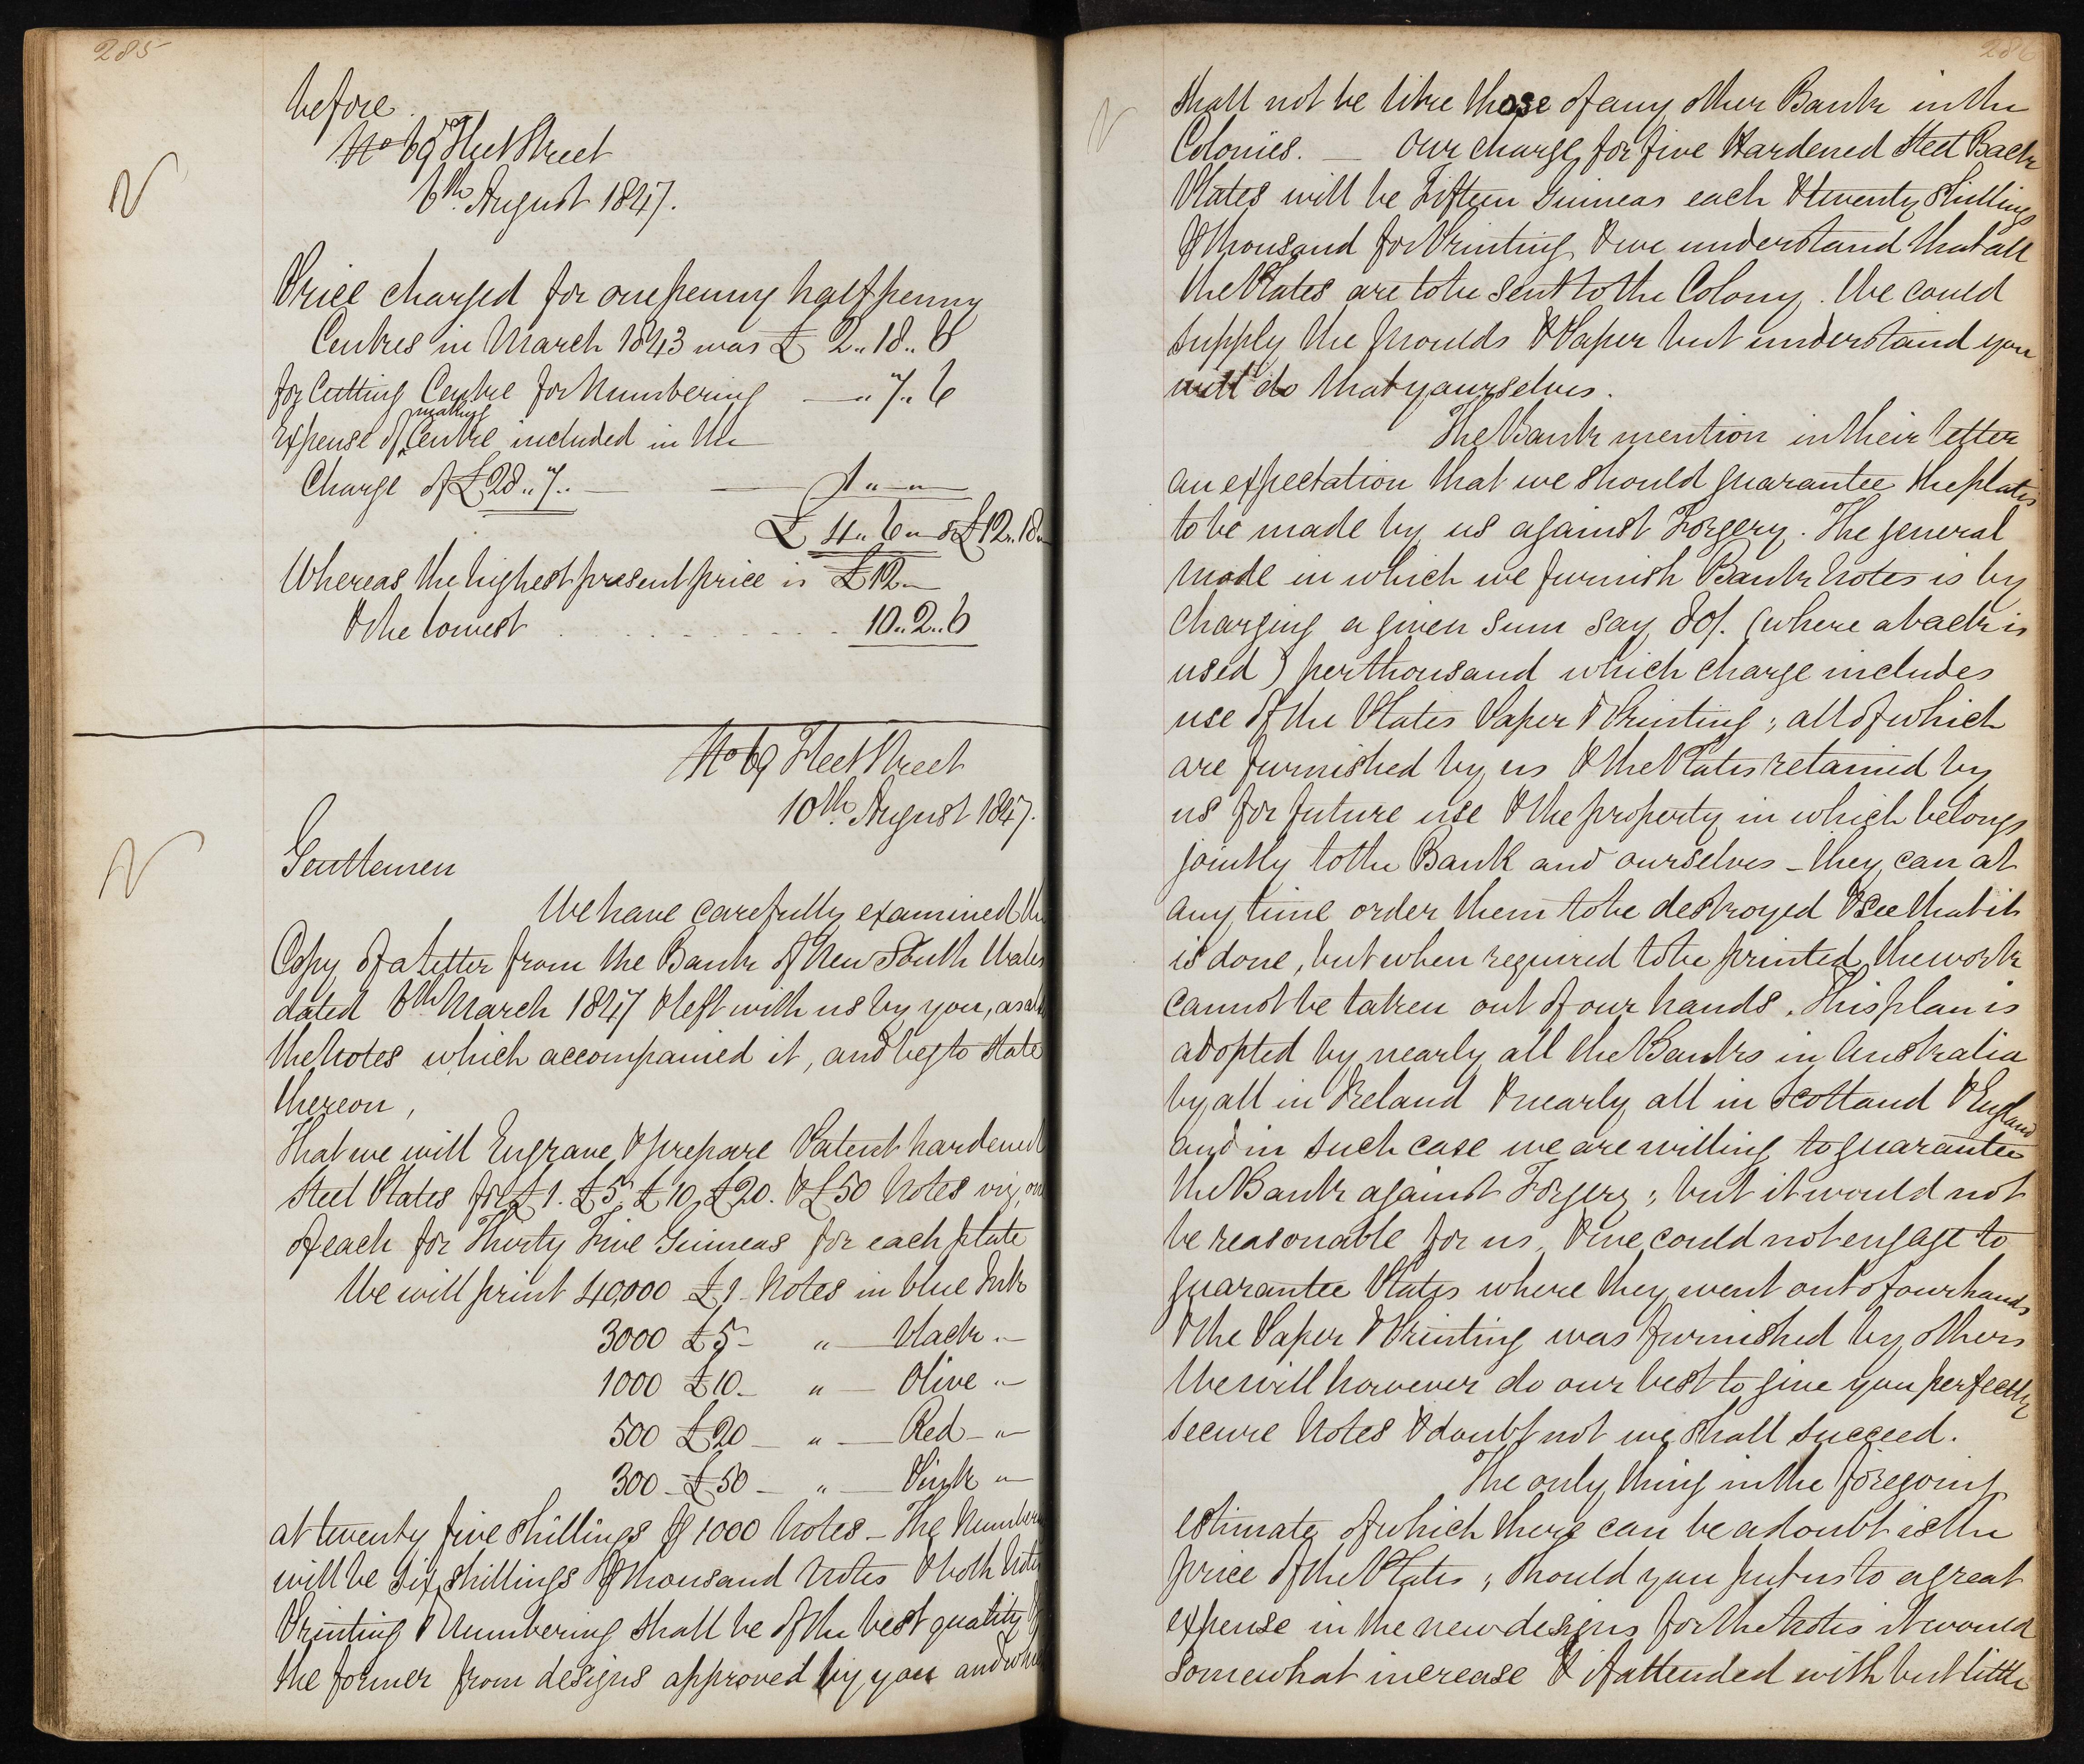 285
before.
No 69 Fleet Street
6th August 1847.
Price charged for one penny half penny
Centres in March 1843 was £ 2..18..6
for Cutting Centre for Numbering — .. 7.. 6
making
Expense of Centre included in the
Charge of £28..7.. — — 1 .. — ..
£ 4.. 6 .. or £12..18..
Whereas the highest present price is £12 —
& the lowest . . . . . . . 10..2..6
No 69 Fleet Street
10th August 1847.
Gentlemen
We have carefully examined the
Copy of a letter from the Bank of New South Wales
dated 6th March 1847 & left with us by you, as also
the Notes which accompanied it, and beg to state
thereon,
That we will Engrave & prepare Patent hardened
Steel Plates for £1. £5, £10, £20. & £50 Notes viz, one
of each for Thirty Five Guineas for each plate
We will print 40,000 £1 Notes in blue Ink
3000 £5 — „ — black „ —
1000 £10 — „ — Olive „ —
500 £20 — „ — Red — „ —
300 — £50 — „ — Pink „ —
at twenty five shillings ⅌ 1000 Notes — The Numbering
will be six shillings ⅌ thousand Notes & both Notes
Printing & Numbering shall be of the best quality
the former from designs approved by you and
286
shall not be like those of any other Bank in the
Colonies. — Our charge for five Hardened Steel Back
Plates will be Fifteen Guineas each & twenty shillings
⅌ thousand for Printing & we understand that all
the Plates are to be sent to the Colony. We could
supply the Moulds & Paper but understand you
will do that yourselves.
The Bank mention in their letter
an expectation that we should guarantee the plates
to be made by us against Forgery. The general
mode in which we furnish Bank Notes is by
charging a given sum say 80/. (where a back is
used) per thousand which charge includes
use of the Plates Paper & Printing; all of which
are furnished by us & the Plates retained by
us for future use & the property in which belongs
jointly to the Bank and ourselves — they can at
any time order them to be destroyed & see that it
is done, but when required to be printed the work
cannot be taken out of our hands. This plan is
adopted by nearly all the Banks in Australia
by all in Ireland & nearly all in Scotland & England
and in such case we are willing to guarantee
the Bank against Forgery; but it would not
be reasonable for us, & we could not engage to
guarantee Plates where they went out of our hands
& the Paper & Printing was furnished by others
We will however do our best to give you perfectly
secure Notes & doubt not we shall succeed.
The only thing in the foregoing
estimate of which there can be a doubt is the
price of the Plates; should you put us to a great
expense in the new designs for the Notes it would
somewhat increase & if attended with but little